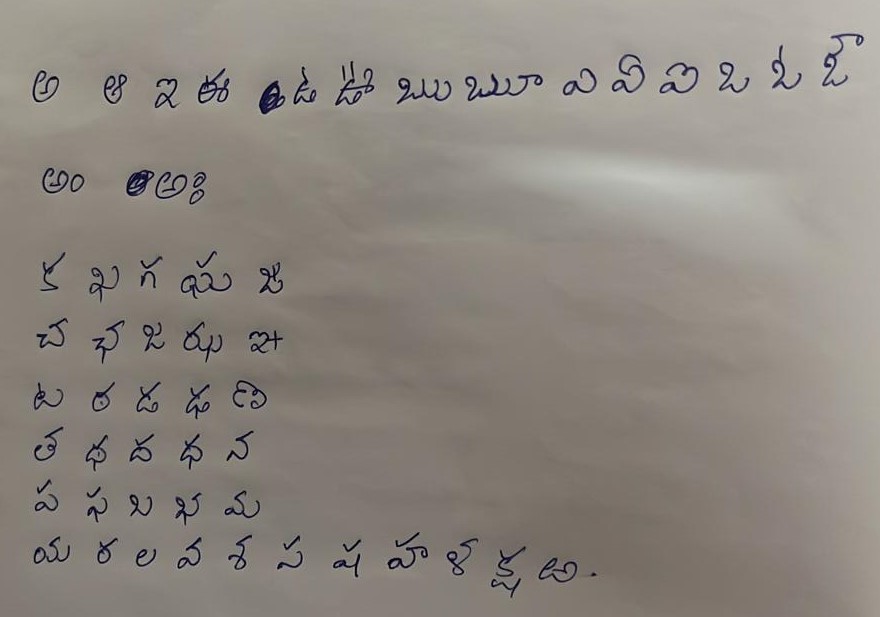 అ ఆ ఇ ఈ ఉ ఊ ఋ ౠ ఎ ఏ ఐ ఒ ఓ ఔ
అం అః
క ఖ గ ఘ ఙ
చ ఛ జ ఝ ఞ
ట ఠ డ ఢ ణ
త థ ద ధ న
ప ఫ బ భ మ
య ర ల వ శ స ష హ ళ క్ష ఱ.